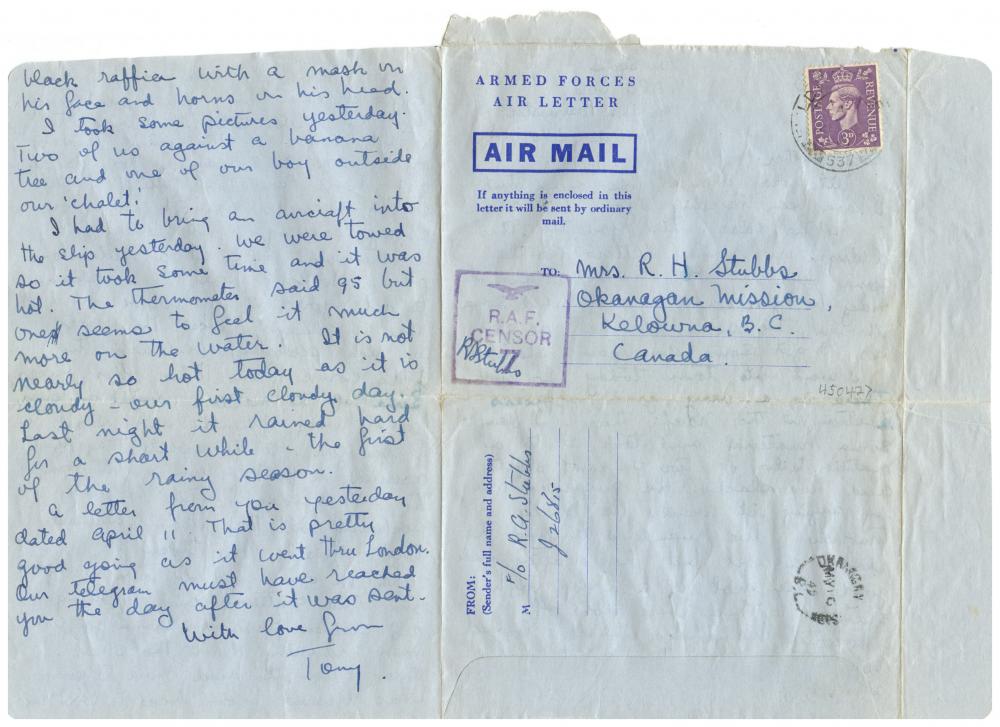 black raffia with a mask on
his face and horns on his head.
I took some pictures yesterday.
Two of us against a banana
tree and one of our boy outside
our 'chalet'.
I had to bring an aircraft into
the slip yesterday. We were towed
so it took some time and it was
hot. The thermometer said 95 but
one seems to feel it much
more on the water. It is not
nearly so hot today as it is
cloudy - our first cloudy day.
Last night it rained hard
for a short while - the first
of the rainy season.
A letter from you yesterday
dated April 11. That is pretty
good going as it went thru London.
Our telegram must have reached
you the day after it was sent.
With love from
Tony.
ARMED FORCES
AIR LETTER
AIR MAIL
If anything is enclosed in this
letter it will be sent by ordinary
mail.
POSTAGE REVENUE
3D
537
TO: Mrs. R. H. Stubbs
Okanagan Mission,
Kelowna, B.C.
Canada.
R.A.F.
CENSOR
RAStubbs
450427
FROM:
(Sender's full name and address)
M F/O R.A. Stubbs
J26815
OKANAGAN
MY
B.C.